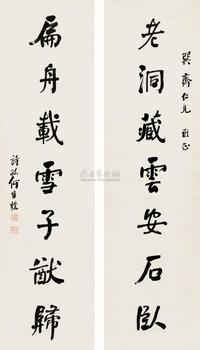 巽齋仁兄雅正
老洞藏雲安石臥
扁舟載雪子猷歸
詩孫何維樸